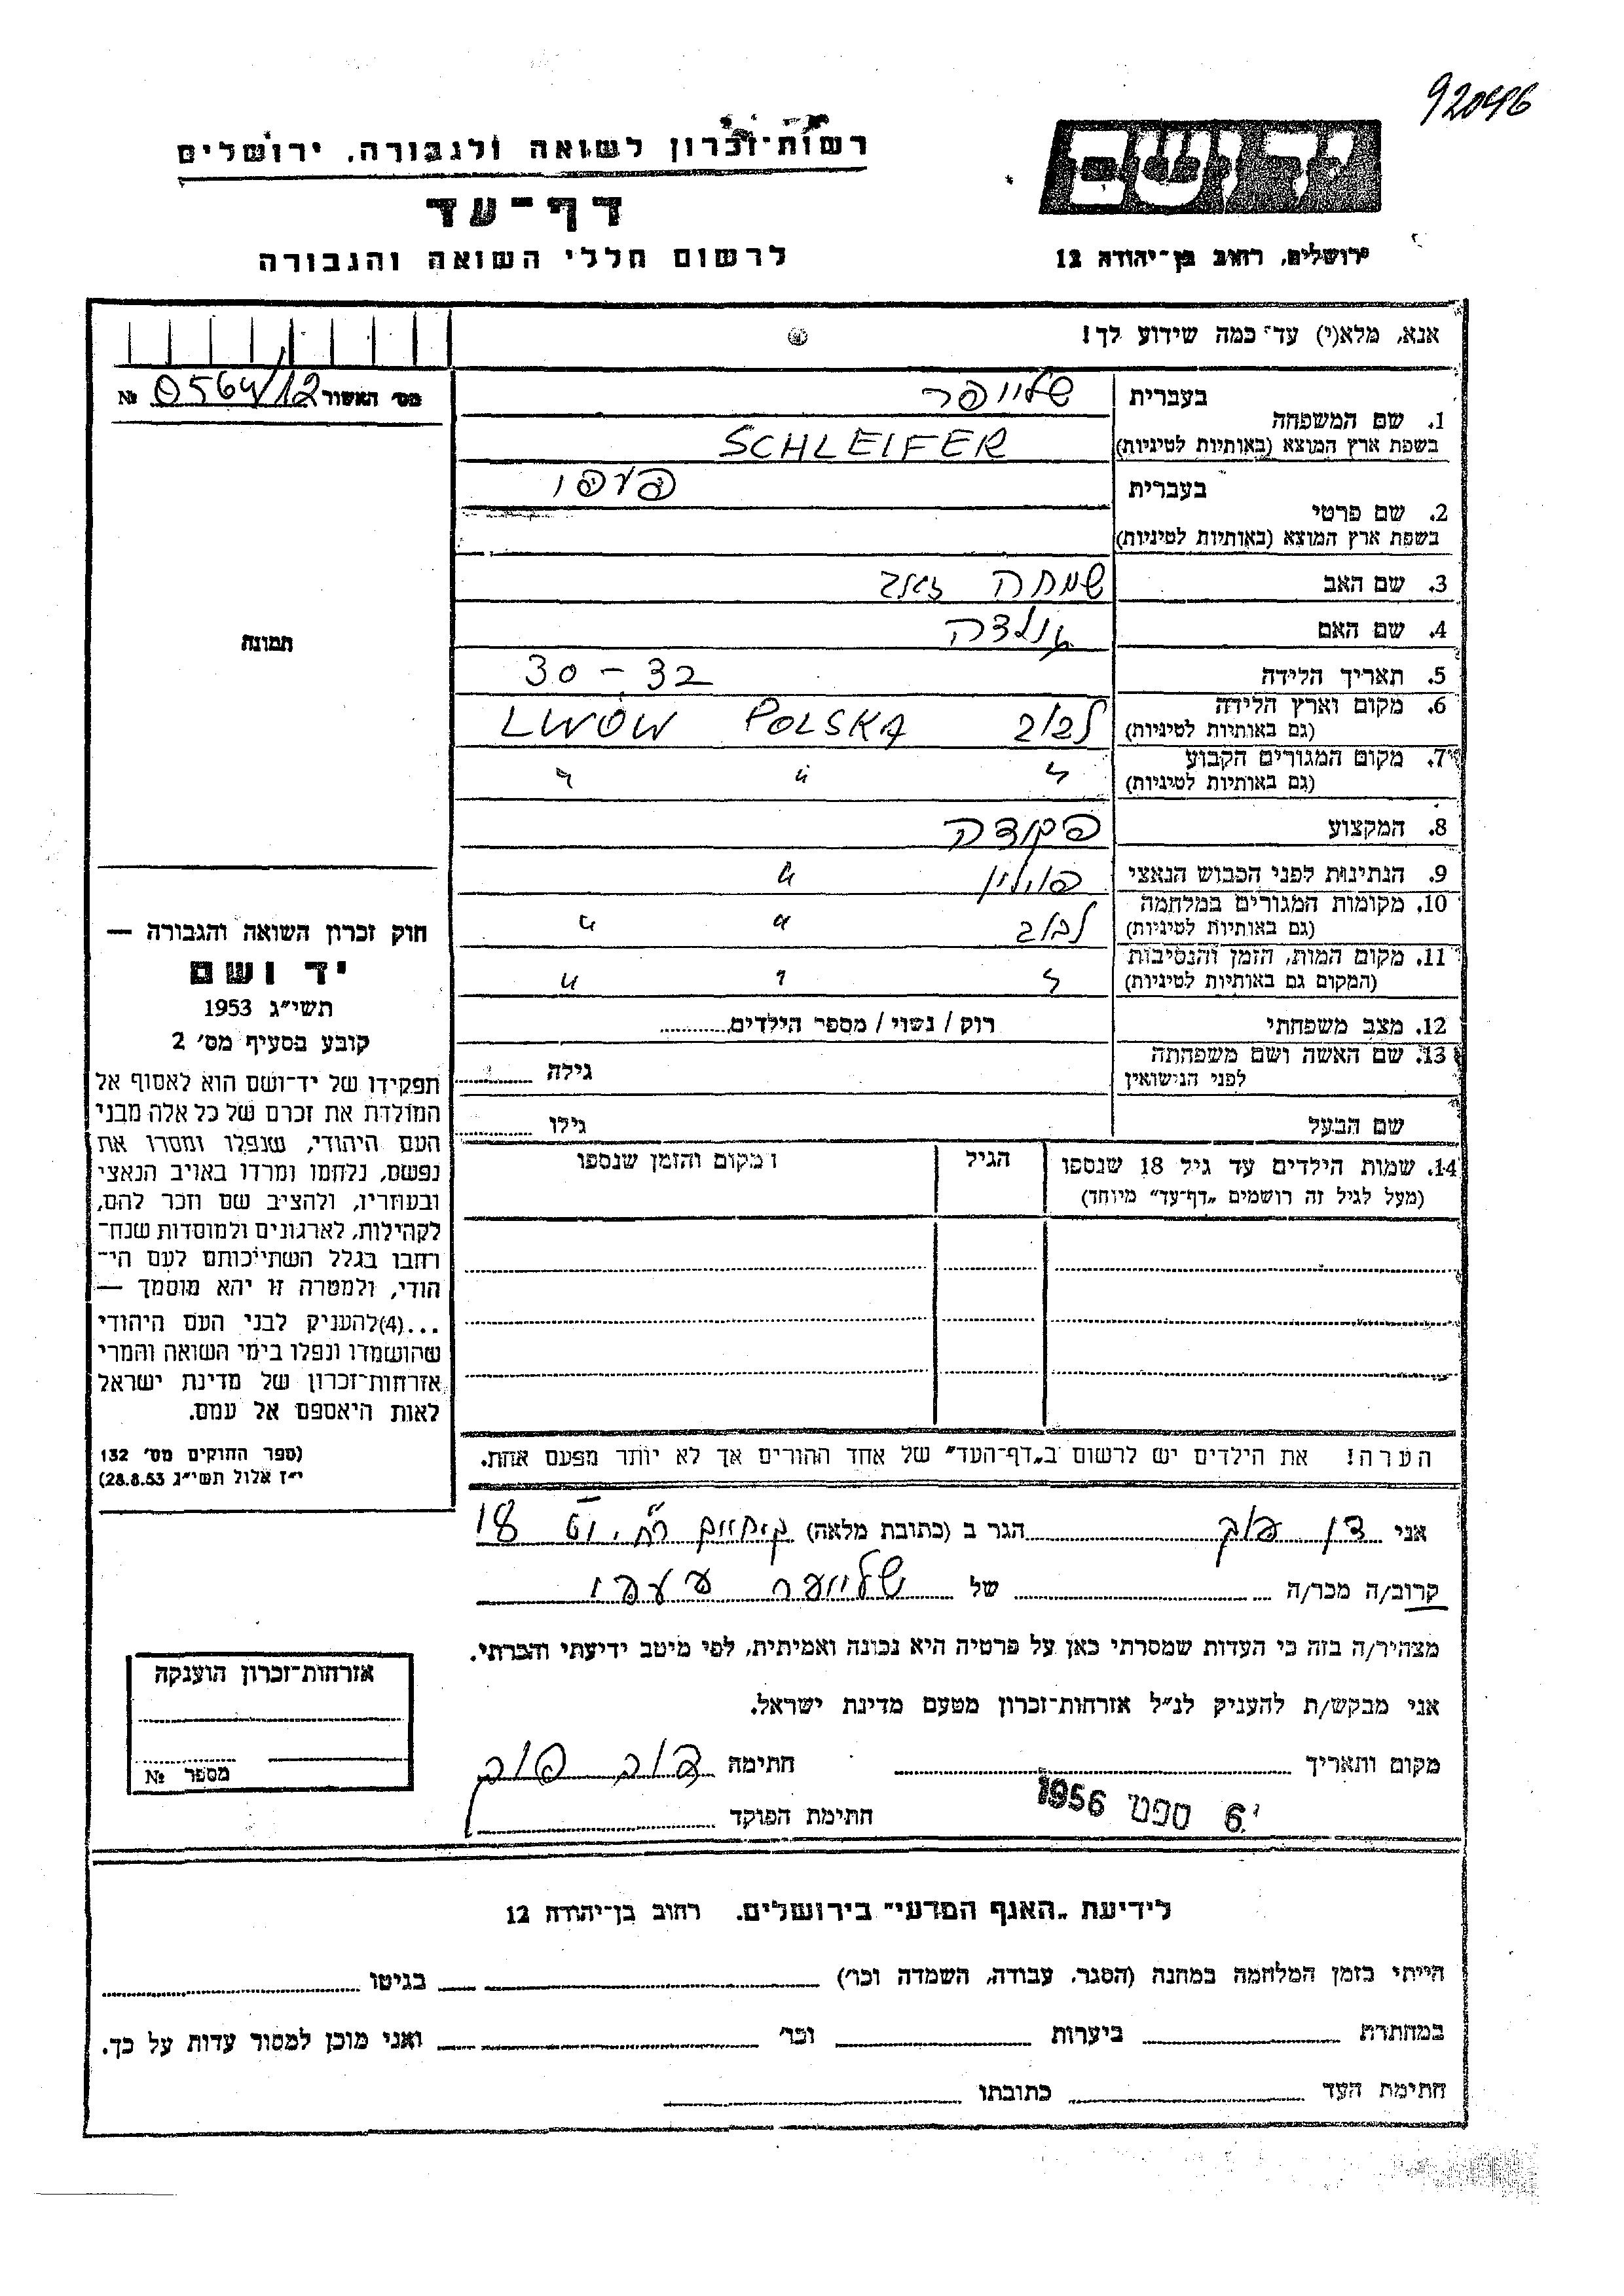 92046
רשות־זכרון לשואה ולגבורה, ירושלים
דף־עד
לרשום חללי השואה והגבורה
יד ושם
ירושלים, רחוב בן־יהודה 12
אנא, מלא(י) עד כמה שידוע לך!
מס׳ האשור 0564/12 №
1. שם המשפחה בעברית שלייפר
בשפת ארץ המוצא (באותיות לטיניות) SCHLEIFER
2. שם פרטי בעברית
בשפת ארץ המוצא (באותיות לטיניות)
3. שם האב שמחה זאב
4. שם האם
5. תאריך הלידה 30 – 32
6. מקום וארץ הלידה (גם באותיות לטיניות) לבוב POLSKA LWÓW
7. מקום המגורים הקבוע (גם באותיות לטיניות) " " "
8. המקצוע פקודה
9. הנתינות לפני הכבוש הנאצי פולין "
10. מקומות המגורים במלחמה (גם באותיות לטיניות) לבוב " "
11. מקום המות, הזמן והנסיבות (המקום גם באותיות לטיניות) " " "
12. מצב משפחתי רוק / נשוי / מספר הילדים
13. שם האשה ושם משפחתה לפני הנישואין גילה
שם הבעל גילו
14. שמות הילדים עד גיל 18 שנספו (מעל לגיל זה רושמים „דף־עד" מיוחד) הגיל ומקום והזמן שנספו
הערה! את הילדים יש לרשום ב„דף־העד" של אחד ההורים אך לא יותר מפעם אחת.
תמונה
חוק זכרון השואה והגבורה —
יד ושם
תשי״ג 1953
קובע בסעיף מס׳ 2
תפקידו של יד־ושם הוא לאסוף אל
המולדת את זכרם של כל אלה מבני
העם היהודי, שנפלו ומסרו את
נפשם, נלחמו ומרדו באויב הנאצי
ובעוזריו, ולהציב שם וזכר להם,
לקהילות, לארגונים ולמוסדות שנח־
רחבו בגלל השתייכותם לעם הי־
הודי, ולמטרה זו יהא מוסמך —
...(4)להעניק לבני העם היהודי
שהושמדו ונפלו בימי השואה והמרי
אזרחות־זכרון של מדינת ישראל
לאות היאספם אל עמם.
(ספר החוקים מס׳ 132
י״ז אלול תשי״ג 28.8.53)
אני הגר ב (כתובת מלאה) 18
קרוב/ה מכר/ה של
מצהיר/ה בזה כי העדות שמסרתי כאן על פרטיה היא נכונה ואמיתית, לפי מיטב ידיעתי והכרתי.
אני מבקש/ת להעניק לנ״ל אזרחות־זכרון מטעם מדינת ישראל.
מקום ותאריך חתימה
6 ספט 1956
חתימת הפוקד
אזרחות־זכרון הוענקה
מספר №
לידיעת „האגף המדעי" בירושלים. רחוב בן־יהודה 12
הייתי בזמן המלחמה במחנה (הסגר, עבודה, השמדה וכו׳) בגיטו
במחתרת ביערות וכו׳ ואני מוכן למסור עדות על כך.
חתימת העד כתובתו